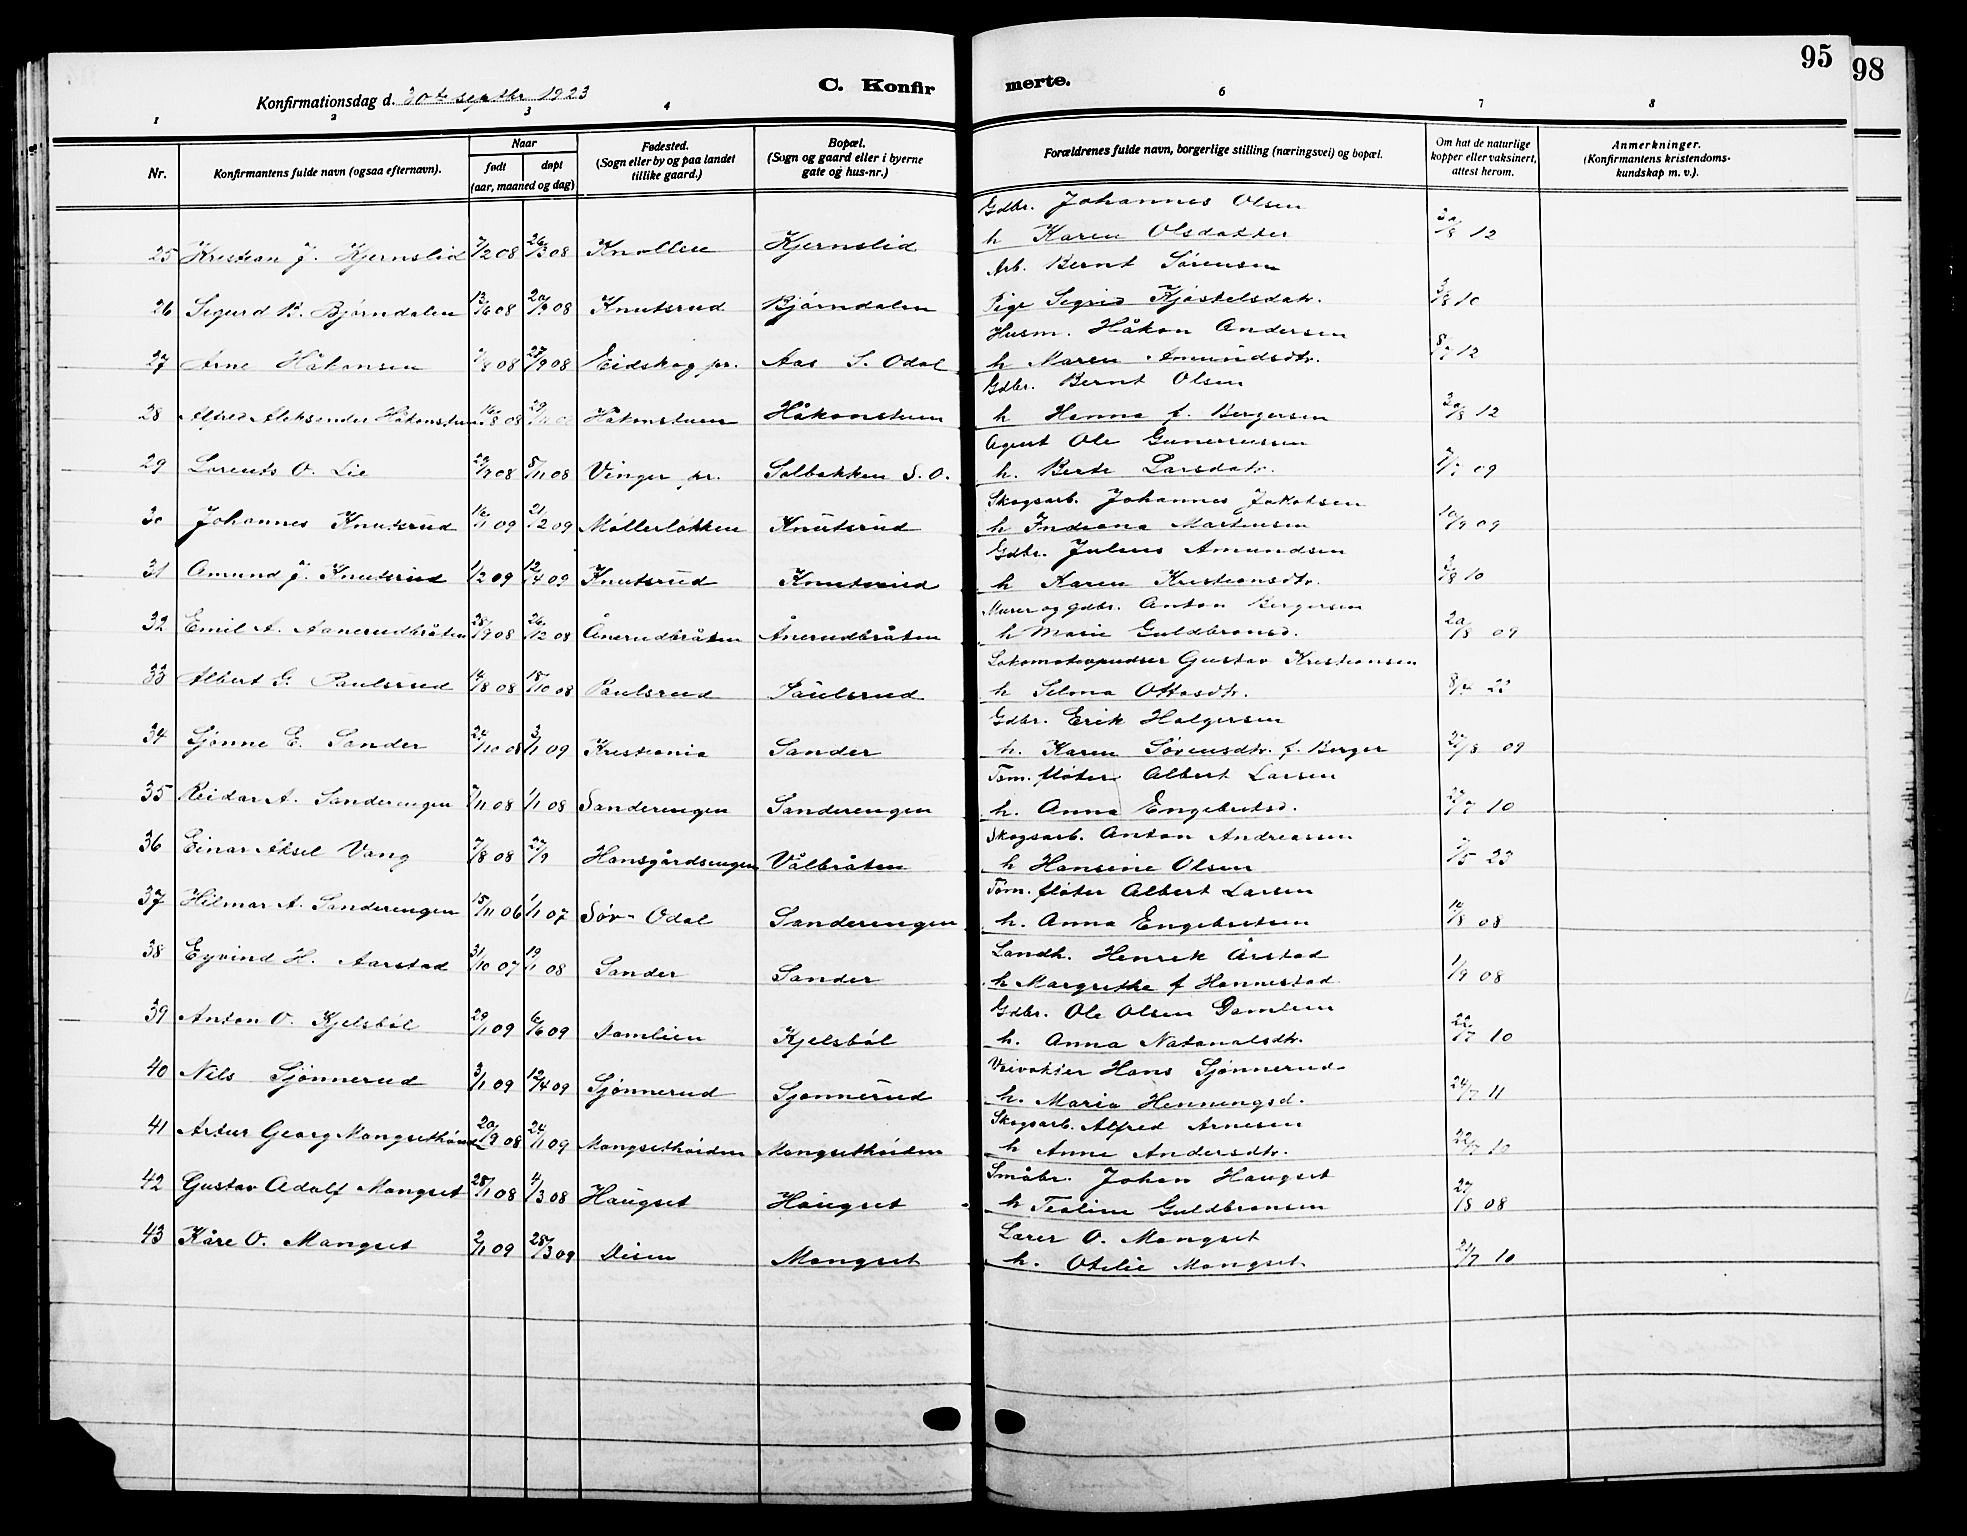 95
98
Konfirmationsdag d. 30te septbr 1923
C. Konfirmerte.
1 2 3 4 6 7 8
Nr.
Konfirmantens fulde navn (ogsaa efternavn).
Naar
født
døpt
(aar, maaned og dag)
Fødested.
(Sogn eller by og paa landet
tillike gaard.)
Bopæl.
(Sogn og gaard eller i byerne
gate og hus-nr.)
Forældrenes fulde navn, borgerlige stilling (næringsvei) og bopæl.
Om hat de naturlige
kopper eller vaksinert,
attest herom.
Anmerkninger.
(Konfirmantens kristendoms-
kundskap m. v.).
Gdbr. Johannes Olsen
25 Kristian J. Kjernslid 7/2 08 26/3 08 Knollen Kjernslid h Karen Olsdatter 12
Arb. Bernt Sørensen
26 Sigurd B. Bjørndalen 13/6 08 20/9 08 Knutsrud Bjørndalen Pige Sigrid Kjøstelsdatr. 3/8 10
Husm. Håkon Andersen
27 Arne Håkonsen 08 27/9 08 Eidskog pr. Aas S. Odal h Maren Amundsdtr. 8/7 12
Gdbr. Bernt Olsen
28 Alfred Aleksander Håkonstuen 16/8 08 Håkonstuen Håkonstuen h Hanna f. Bergersen 12
Agent Ole Guneriussen
29 Lorents O. Lie 29/9 08 8/11 08 Vinger pr. Solbakken S. O. h. Berte Larsdatr. 09
Skogsarb. Johannes Jakobsen
30 Johannes Knutsrud 16/1 09 21/2 09 Møllerløkken Knutsrud h Indiana Martinsen 10/9 09
Gdbr. Julius Amundsen
31 Amund J. Knutsrud 1/2 09 12/4 09 Knutsrud Knutsrud h Karen Kristiansdtr. 3/8 10
Murer og gdbr. Anton Bergersen
32 Emil A. Aanerudbråten 28/9 08 26/12 08 Ånerudbråten Ånerudbråten h Marie Guldbransd. 20/8 09
Lokomotivpudser Gustav Kristiansen
33 Albert G. Paulsrud 14/8 08 18/10 08 Paulsrud Paulsrud h Selma Ottosdtr. 8/4 23
Gdbr. Erik Holgersen
34 Sjønne E. Sander 24/10 08 3/1 09 Kristiania Sander h. Karen Sørensdtr. f. Berger 27/8 09
Tøm. fløter Albert Larsen
35 Reidar A. Sanderengen 7/11 08 1/1 08 Sanderengen Sanderengen h. Anna Engebretsd. 27/7 10
Skogsarb. Anton Andreassen
36 Einar Aksel Vang 7/8 08 27/9 Hansgårdsengen Vålbråten h Hansine Olsen 7/5 23
Tøm. fløter Albert Larsen
37 Hilmar A. Sanderengen 15/11 06 1/1 07 Sør-Odal Sanderengen h. Anna Engebretsen 10/8 08
Landh. Henrik Årstad
38 Eyvind H. Aarstad 31/10 07 19/1 08 Sander Sander h Margrethe f Hannestad 1/9 08
Gdbr. Ole Olsen Damlien
39 Anton O. Kjelsbøl 29/1 09 6/6 09 Damlien Kjelsbøl h. Anna Natanalsdtr. 22/7 10
Veivokter Hans Sjønnerud
40 Nils Sjønnerud 3/1 09 12/4 09 Sjønnerud Sjønnerud h. Maria Henningsd. 24/7 11
Skogsarb. Alfred Arnesen
41 Artur Georg Mangsethøiden 20/9 08 24/1 09 Mangsethøiden Mangsethøiden h Anne Andersdtr. 22/7 10
Småbr. Johan Haugset
42 Gustav Adolf Mangset 28/1 08 4/3 08 Haugset Haugset h Tealine Guldbransen 27/8 08
Lærer O. Mangset
43 Kåre O. Mangset 2/1 09 28/3 09 Disen Mangset h. Otilie Mangset 21/7 10